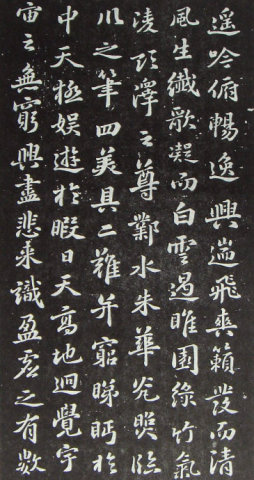 遥吟俯暢逸興遄飛爽籟發而清
風生纖歌凝而白雲遏睢園綠竹氣
凌彭澤之尊鄴水朱華光照臨
川之筆四美具二難并窮睇眄於
中天極娛遊於暇日天高地迥覺宇
宙之無窮興盡悲来識盈虛之有數